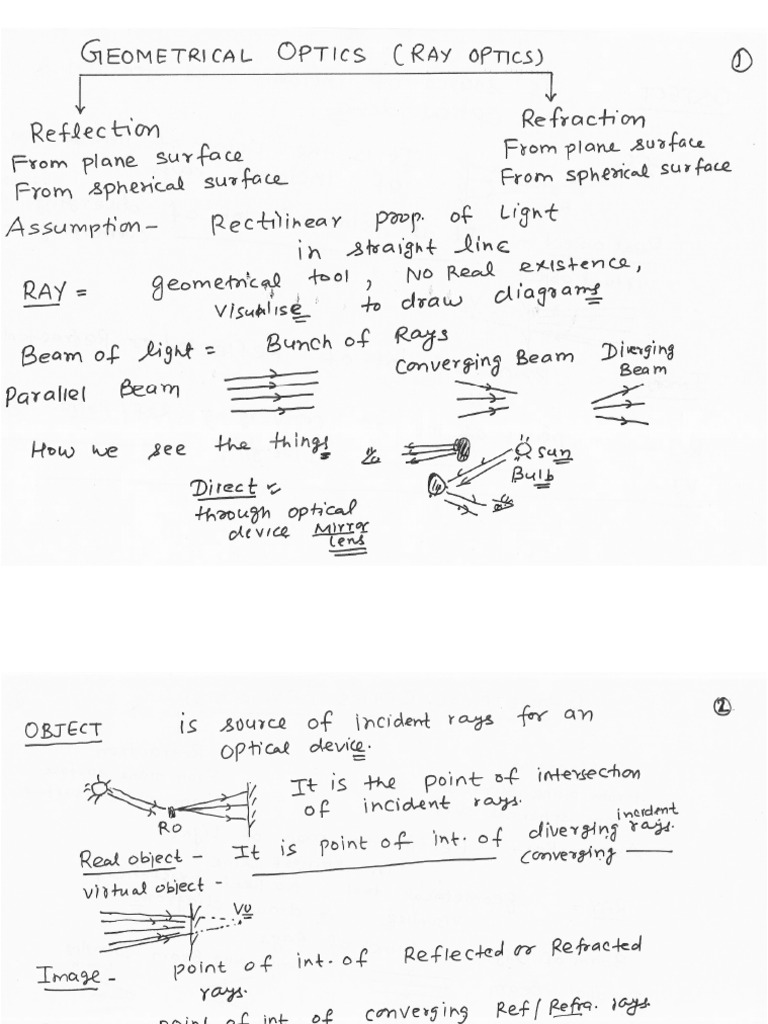 GEOMETRICAL OPTICS (RAY OPTICS)
1
Reflection
From plane surface
From spherical surface
Refraction
From plane surface
From spherical surface
Assumption - Rectilinear prop. of Light
in straight line
RAY = geometrical tool, No Real existence,
visualise to draw diagrams
Beam of light = Bunch of Rays
Parallel Beam
Converging Beam
Diverging
Beam
How we see the things
Sun
Bulb
Direct
through optical
device Mirror
lens
2
OBJECT is source of incident rays for an
optical device.
It is the point of intersection
of incident rays.
RO
Real object - It is point of int. of diverging incident rays.
virtual object - converging
VO
Image - point of int. of Reflected or Refracted
rays.
point of int of converging Ref/Refra. rays